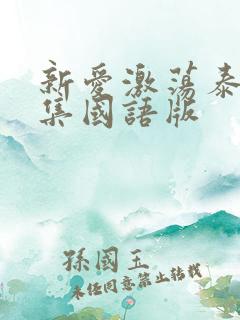 新愛激蕩泰
集國語版
孫國玉
未經同意禁止轉載